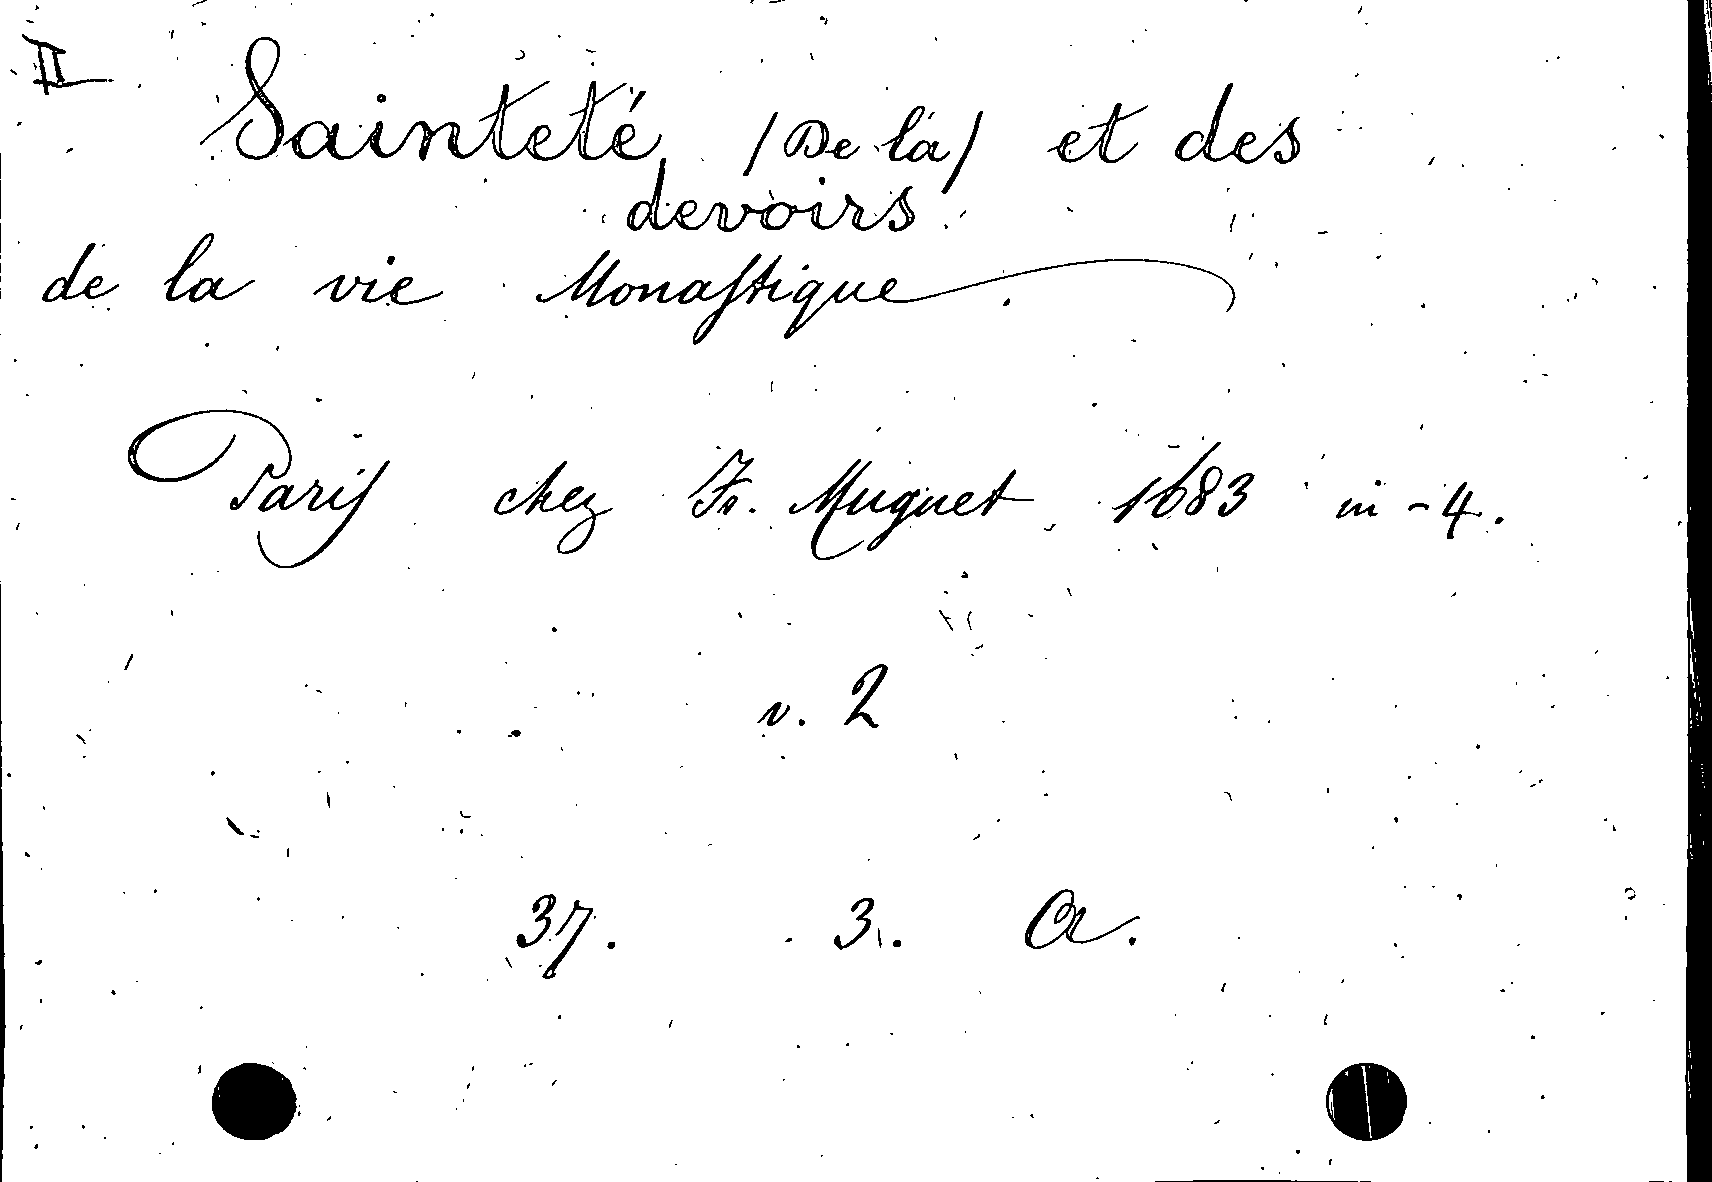 II
Sainteté /De la/ et des
devoirs
de la vie Monaſtique.
Pariſ chez Fr. Muguet, 1683 in-4.
v. 2
37. 3. A.